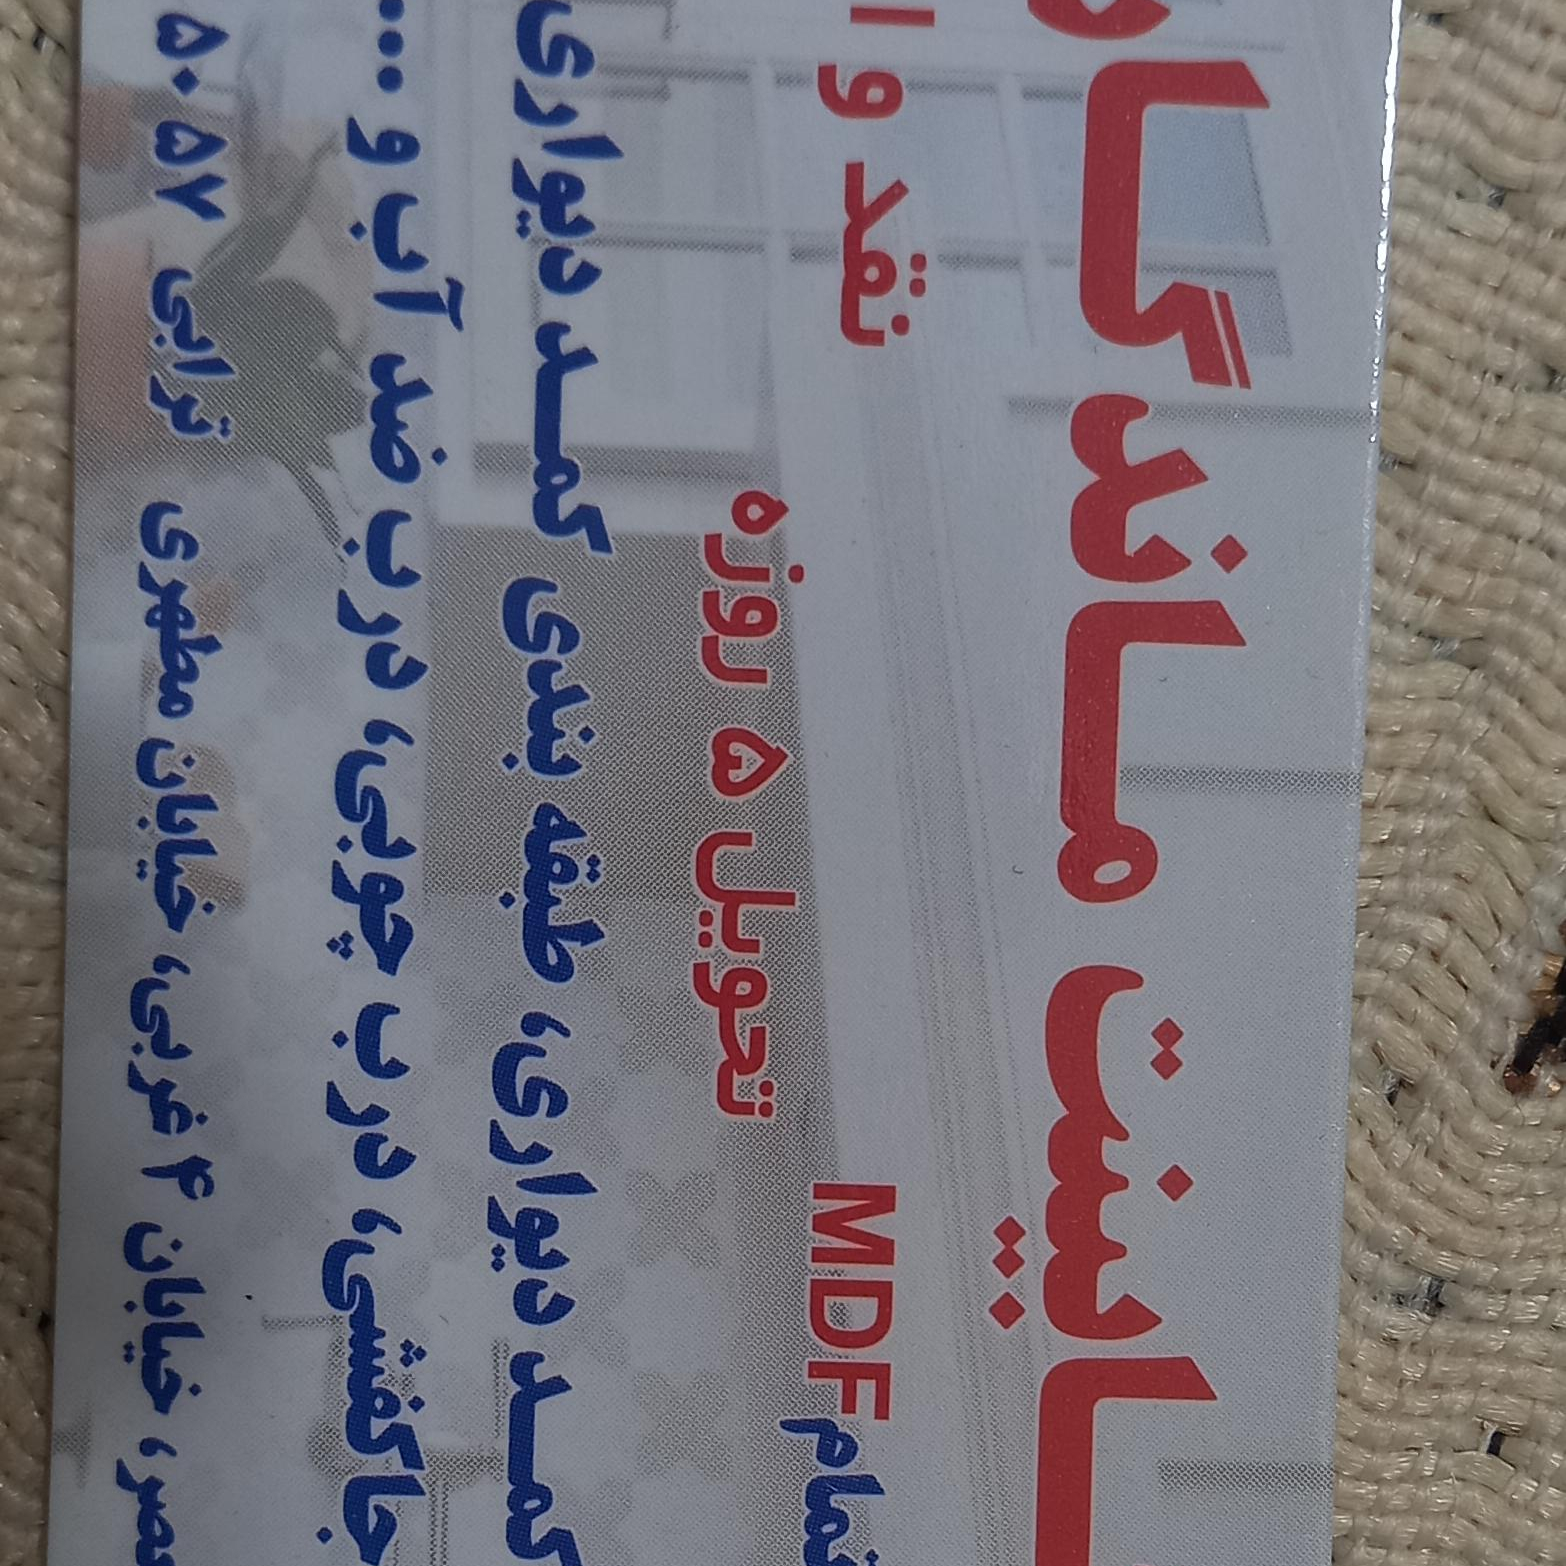 ـابینت ماندگار
تمام MDF نقد و
تحویل ۵ روزه
کمد دیواری، طبقه بندی کمد دیواری
جاکفشی، درب چوبی، درب ضد آب و ...
خیابان ۴ غربی، خیابان مطهری ترابی